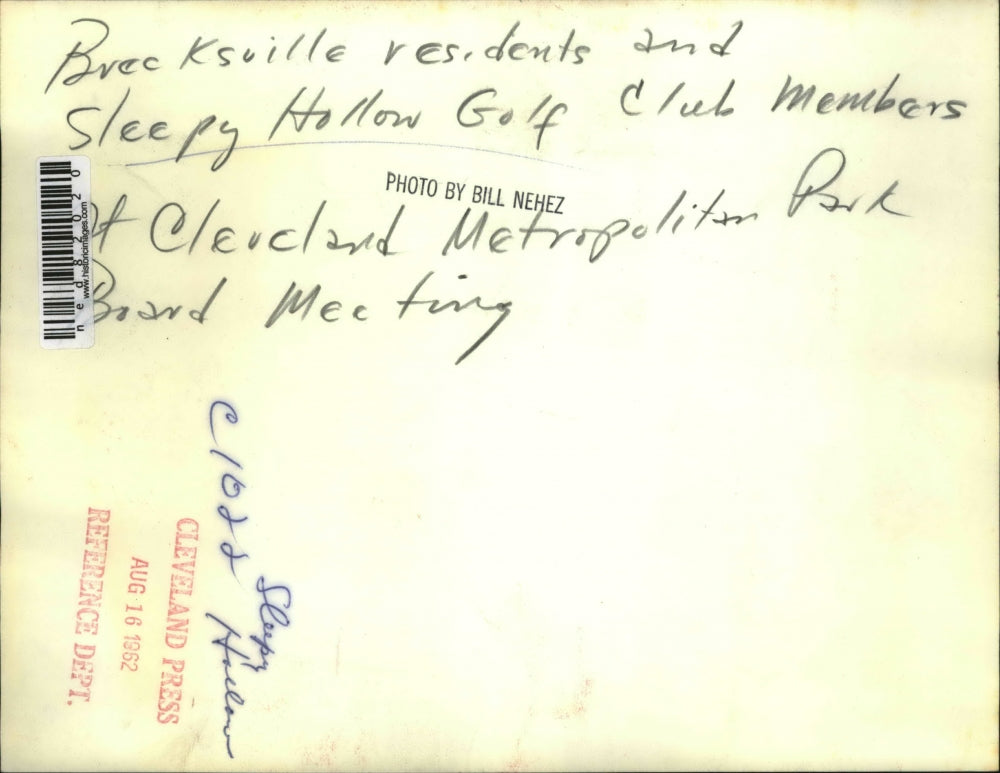 Brecksville residents and
Sleepy Hollow Golf Club Members
PHOTO BY BILL NEHEZ
At Cleveland Metropolitan Park
Board Meeting
ned82020
www.historicimages.com
C1022 Sleepy
Hollow
CLEVELAND PRESS
AUG 16 1962
REFERENCE DEPT.